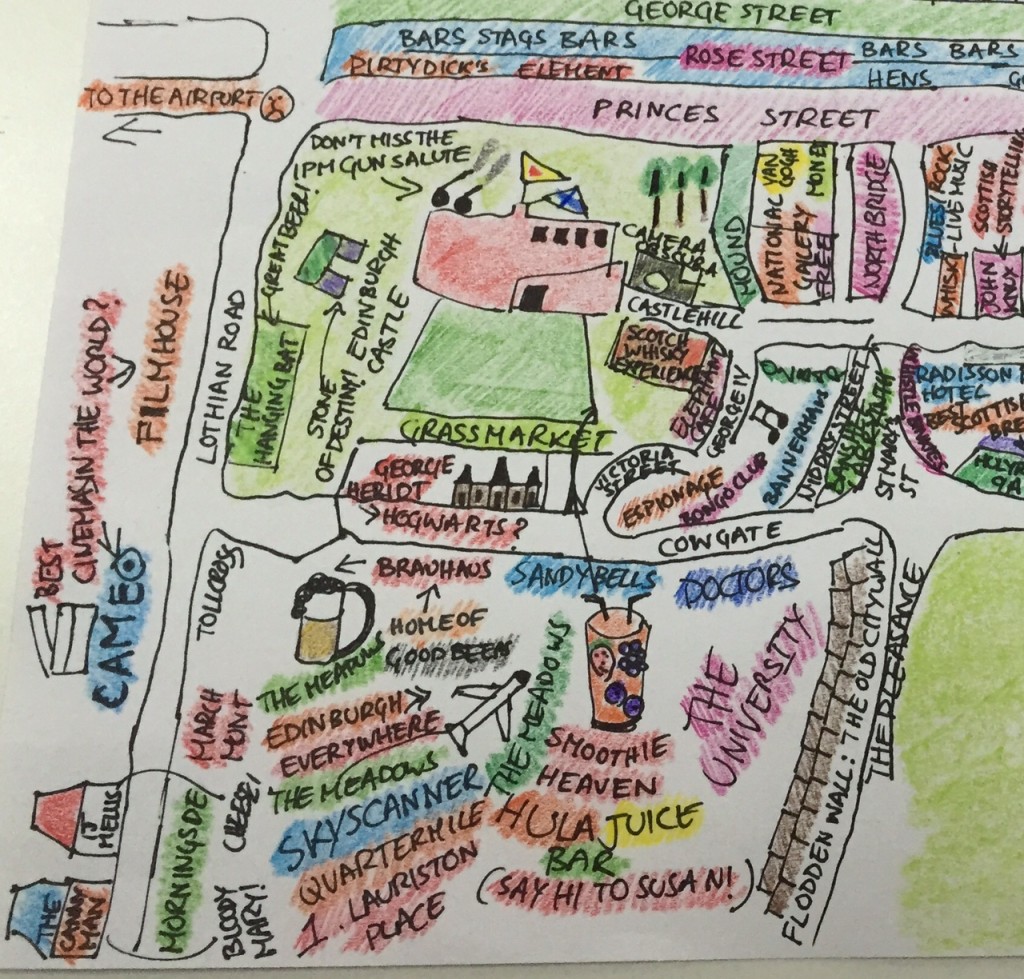 GEORGE STREET
BARS STAGS BARS
ROSE STREET
BARS BARS
DIRTY DICK'S ELEMENT
HENS
TO THE AIRPORT
PRINCES STREET
DON'T MISS THE
1PM GUN SALUTE
GREAT BEER!
THE
HANGING BAT
STONE
OF DESTINY!
EDINBURGH
CASTLE
CAMERA
OBSCURA
MOUND
NATIONAL
GALLERY
FREE
VAN
GOGH
MONET
NORTH BRIDGE
BLUES/ROCK
LIVE MUSIC
SCOTTISH
STORYTELLING
WHISKI
JOHN
KNOX
CASTLEHILL
SCOTCH
WHISKY
EXPERIENCE
ELEPHANT
GEORGE IV
GRASSMARKET
LOTHIAN ROAD
FILMHOUSE
BEST
CINEMAS IN THE WORLD?
CAMEO
GEORGE
HERIOT
HOGWARTS?
VICTORIA
STREET
ESPIONAGE
BONGO CLUB
BANNERMANS
NIDDRY STREET
ST MARY'S
ST
RADISSON
HOTEL
BEST
SCOTTISH
COWGATE
TOLLCROSS
BRAUHAUS
HOME OF
GOOD BEER
SANDY BELLS
DOCTORS
THE MEADOWS
EDINBURGH
EVERYWHERE
THE MEADOWS
THE MEADOWS
SKYSCANNER
QUARTERMILE
1. LAURISTON
PLACE
SMOOTHIE
HEAVEN
HULA JUICE
BAR
(SAY HI TO SUSAN!)
THE
UNIVERSITY
FLODDEN WALL: THE OLD CITY WALL
THE PLEASANCE
MARCH
MONT
MORNINGSIDE
CHEESE!
BLOODY
MARY!
IJ
MELLIS
THE
CANNY
MAN